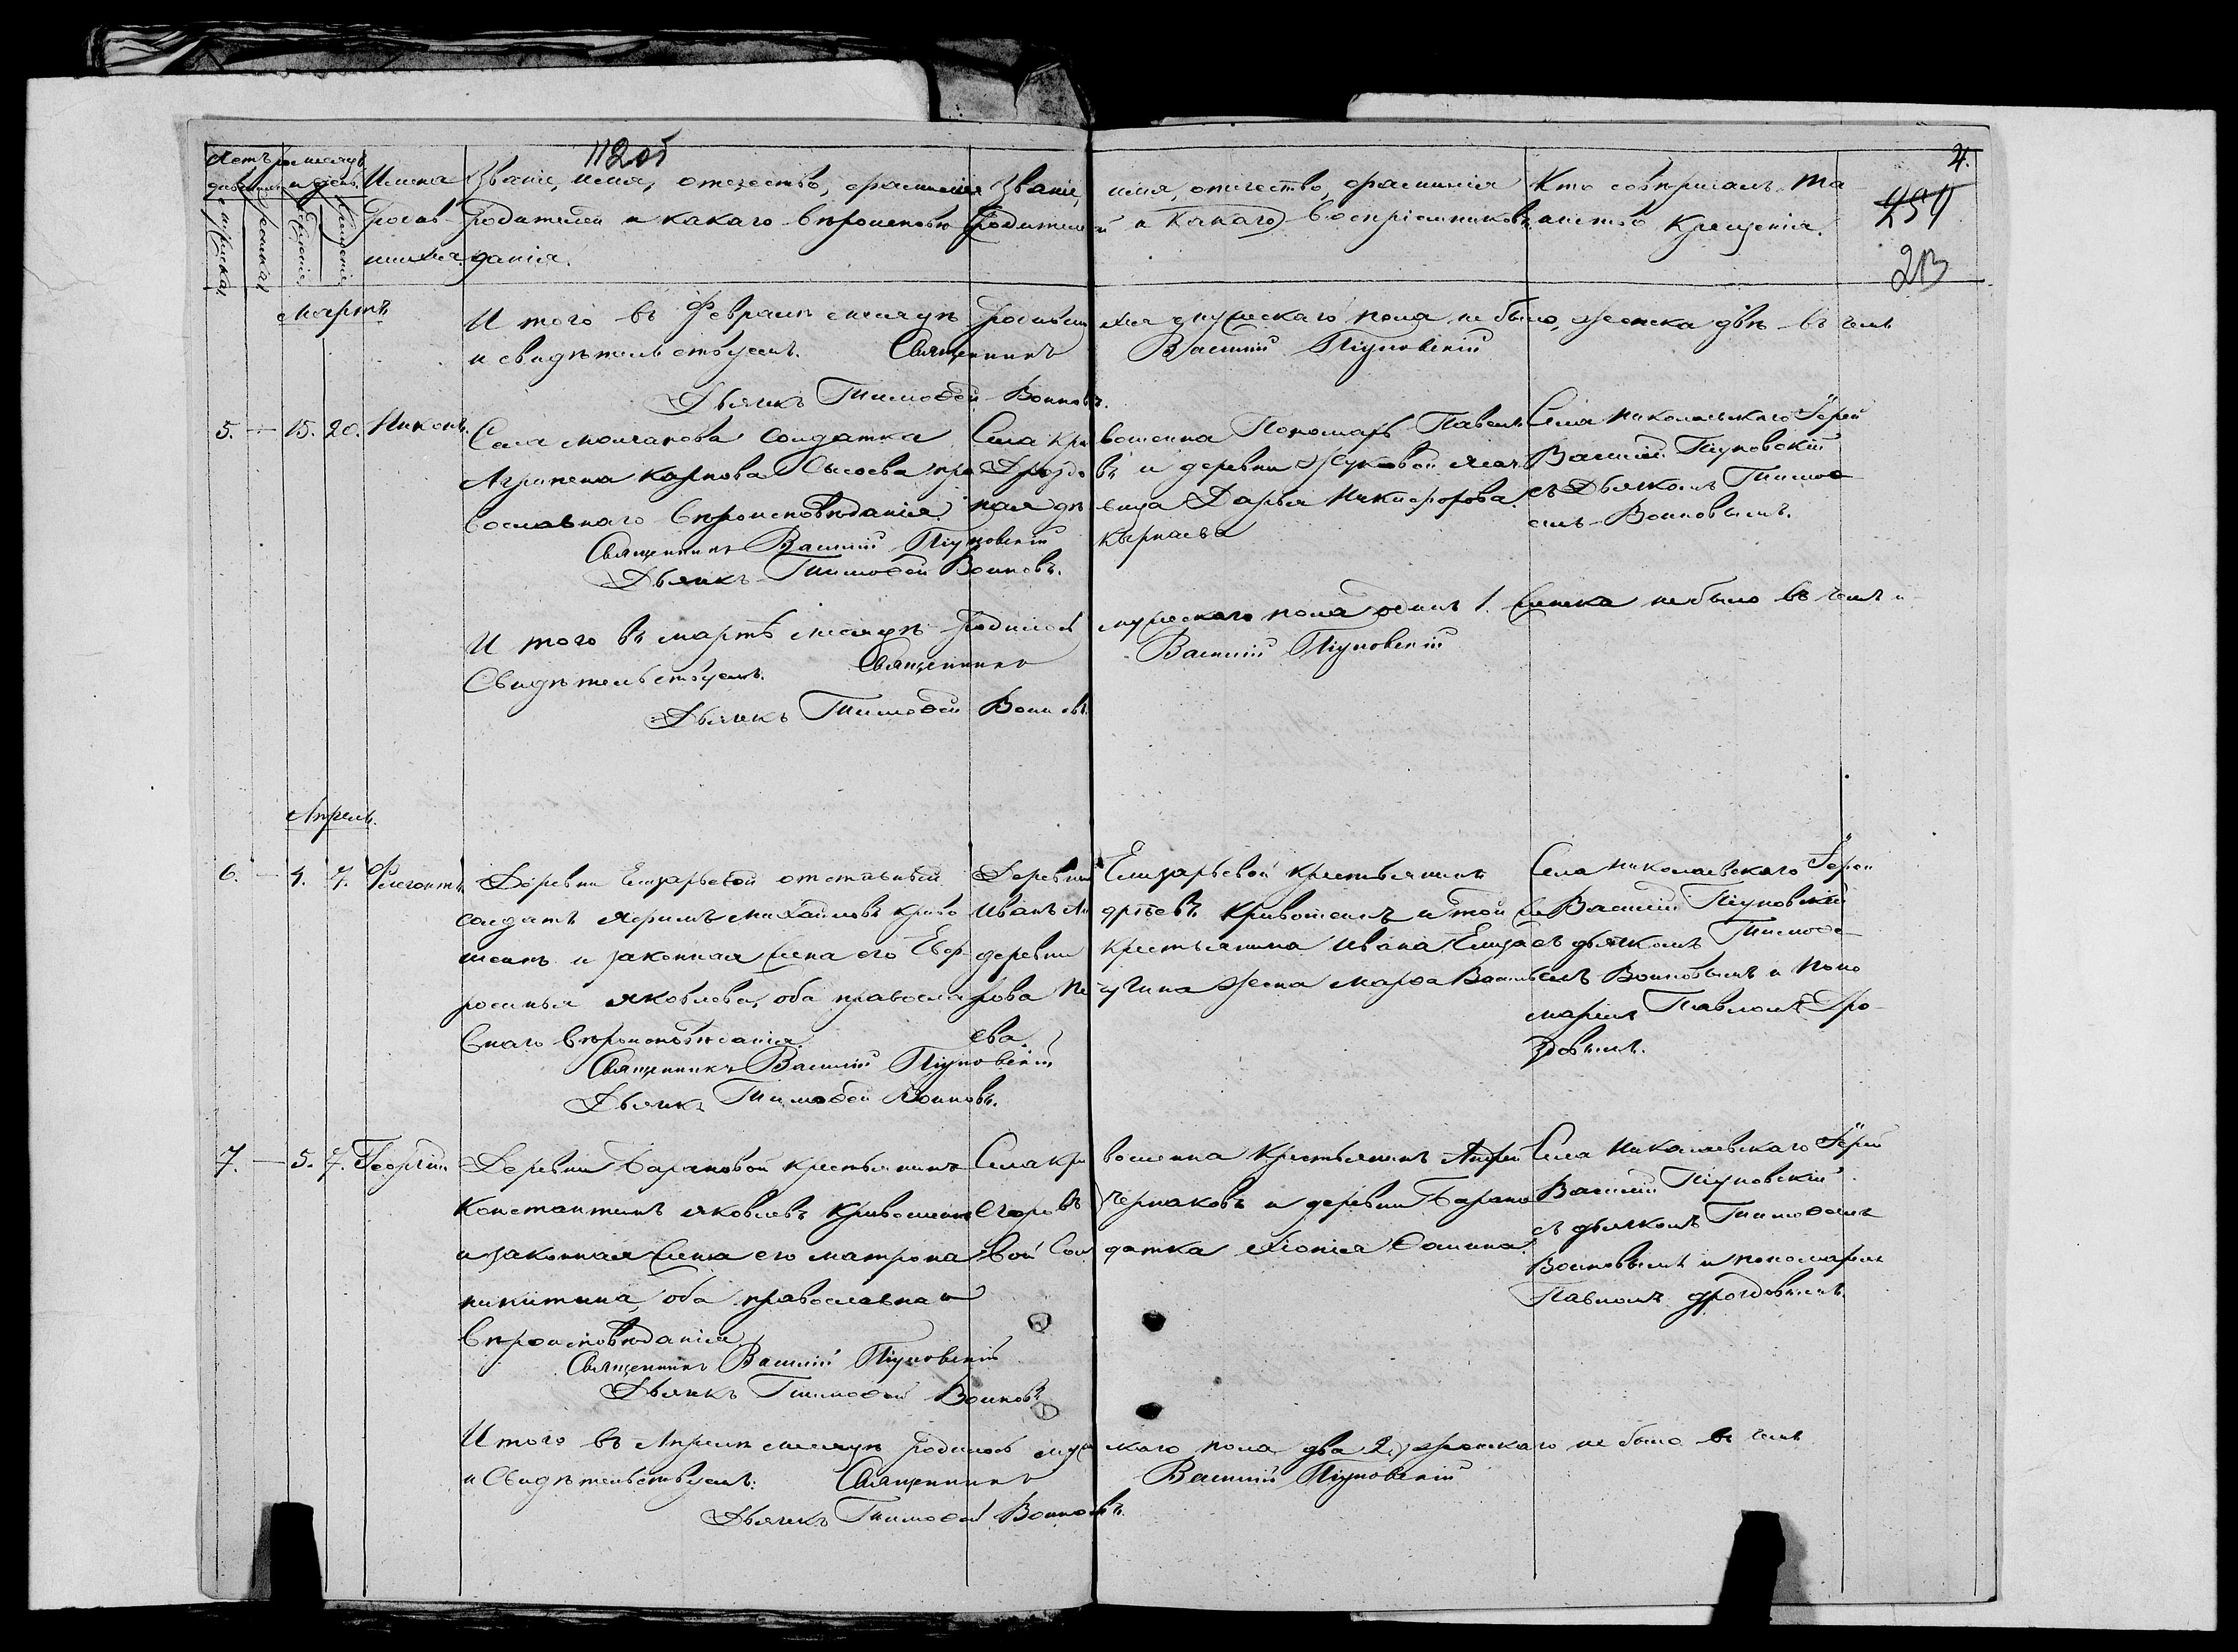 112об
4.
259
213
Счетъ родившихся
Мѣсяцъ и день.
мужска
женска
Рожденія
Крещенія
Имена
родив
шихся.
Званіе, имя, отчество, фамилія
родителей и какаго вѣроисповѣ
данія.
Званіе, имя, отчество, фамилія
родителей и какаго воспріемниковъ.
Кто совершалъ та
инство крещенія.
Мартъ
И того въ Февралѣ мѣсяцѣ родившихся мужескаго пола не было, женска двѣ въ чемъ
и свидѣтельствуемъ. Священникъ Василій Піуновскій
Дьячекъ Тимофей Воиновъ.
5. — 15. 20. Никонъ.
Села Молчанова солдатка
Агрипена Карпова Сысоева пра
вославнаго вѣроисповѣданія.
Священникъ Василій Піуновскій
Дьячекъ Тимофей Воиновъ.
Села Кривошеина Пономарь Павелъ
Дроздовъ и деревни Жуковой
ная дѣвица Дарья Никифорова
Села Николаевскаго Іерей
Василій Піуновскій
съ Дьячкомъ Тимофе
емъ Воиновымъ.
И того въ Мартѣ мѣсяцѣ родилось мужескаго пола одинъ 1. женска небыло въ чемъ и
Свидѣтельствуемъ. Священникъ Василій Піуновскій
Дьячекъ Тимофей Воиновъ.
Апрель.
6. — 4. 7. Флегонтъ.
Деревни Елизарьевой отставный
солдатъ Ефимъ Михайловъ Криво
шеинъ и законная жена его Евф
росинья Яковлева, оба правосла
внаго вѣроисповѣданія.
Священникъ Василій Піуновскій
Дьячекъ Тимофей Воиновъ.
Деревни Елизарьевой крестьянинъ
Иванъ Андреевъ Кривошеинъ и той же
деревни крестьянина Ивана Елиза
рова жена Марфа Василь
ева.
Села Николаевскаго Іерей
Василій Піуновскій
съ дьячкомъ Тимофе
емъ Воиновымъ и Поно
маремъ Павломъ Дро
здовымъ.
7. — 5. 7. Георгій
Деревни Барановой крестьянинъ
Константинъ Яковлевъ Кривошеинъ
и законная жена его Матрона
Никитина, оба православнаго
вѣроисповѣданія.
Священникъ Василій Піуновскій
Дьячекъ Тимофей Воиновъ
Села Кривошеина Крестьянинъ Андрей
Егоровъ Чермаковъ и деревни Барано
вой Солдатка Хіонія Фомина.
Села Николаевскаго Іерей
Василій Піуновскій
съ дьячкомъ Тимофеемъ
Воиновымъ и пономаремъ
Павломъ Дроздовымъ.
И того въ Апрелѣ мѣсяцѣ родилось мужескаго пола два 2, женскаго не было въ чемъ
и Свидѣтельствуемъ: Священникъ Василій Піуновскій
Дьячекъ Тимофей Воиновъ.